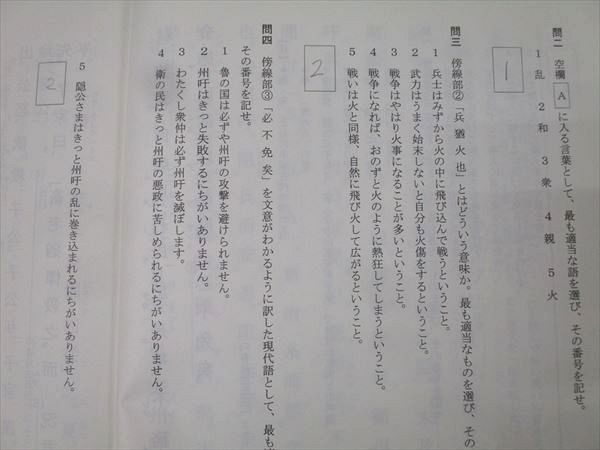 問二　空欄　A　に入る言葉として、最も適当な語を選び、その番号を記せ。
1　乱　2　和　3　衆　4　親　5　火
1
問三　傍線部②「兵　猶　火　也」とはどういう意味か。最も適当なものを選び、その
1　兵士はみずから火の中に飛び込んで戦うということ。
2　武力はうまく始末しないと自分も火傷をするということ。
3　戦争はやはり火事になることが多いということ。
4　戦争になれば、おのずと火のように熱狂してしまうということ。
5　戦いは火と同様、自然に飛び火して広がるということ。
2
問四　傍線部③「必　不　免　矣」を文意がわかるように訳した現代語として、最も
その番号を記せ。
1　魯の国は必ずや州吁の攻撃を避けられません。
2　州吁はきっと失敗するにちがいありません。
3　わたくし衆仲は必ず州吁を滅ぼします。
4　衛の民はきっと州吁の悪政に苦しめられるにちがいありません。
5　隠公さまはきっと州吁の乱に巻き込まれるにちがいありません。
2